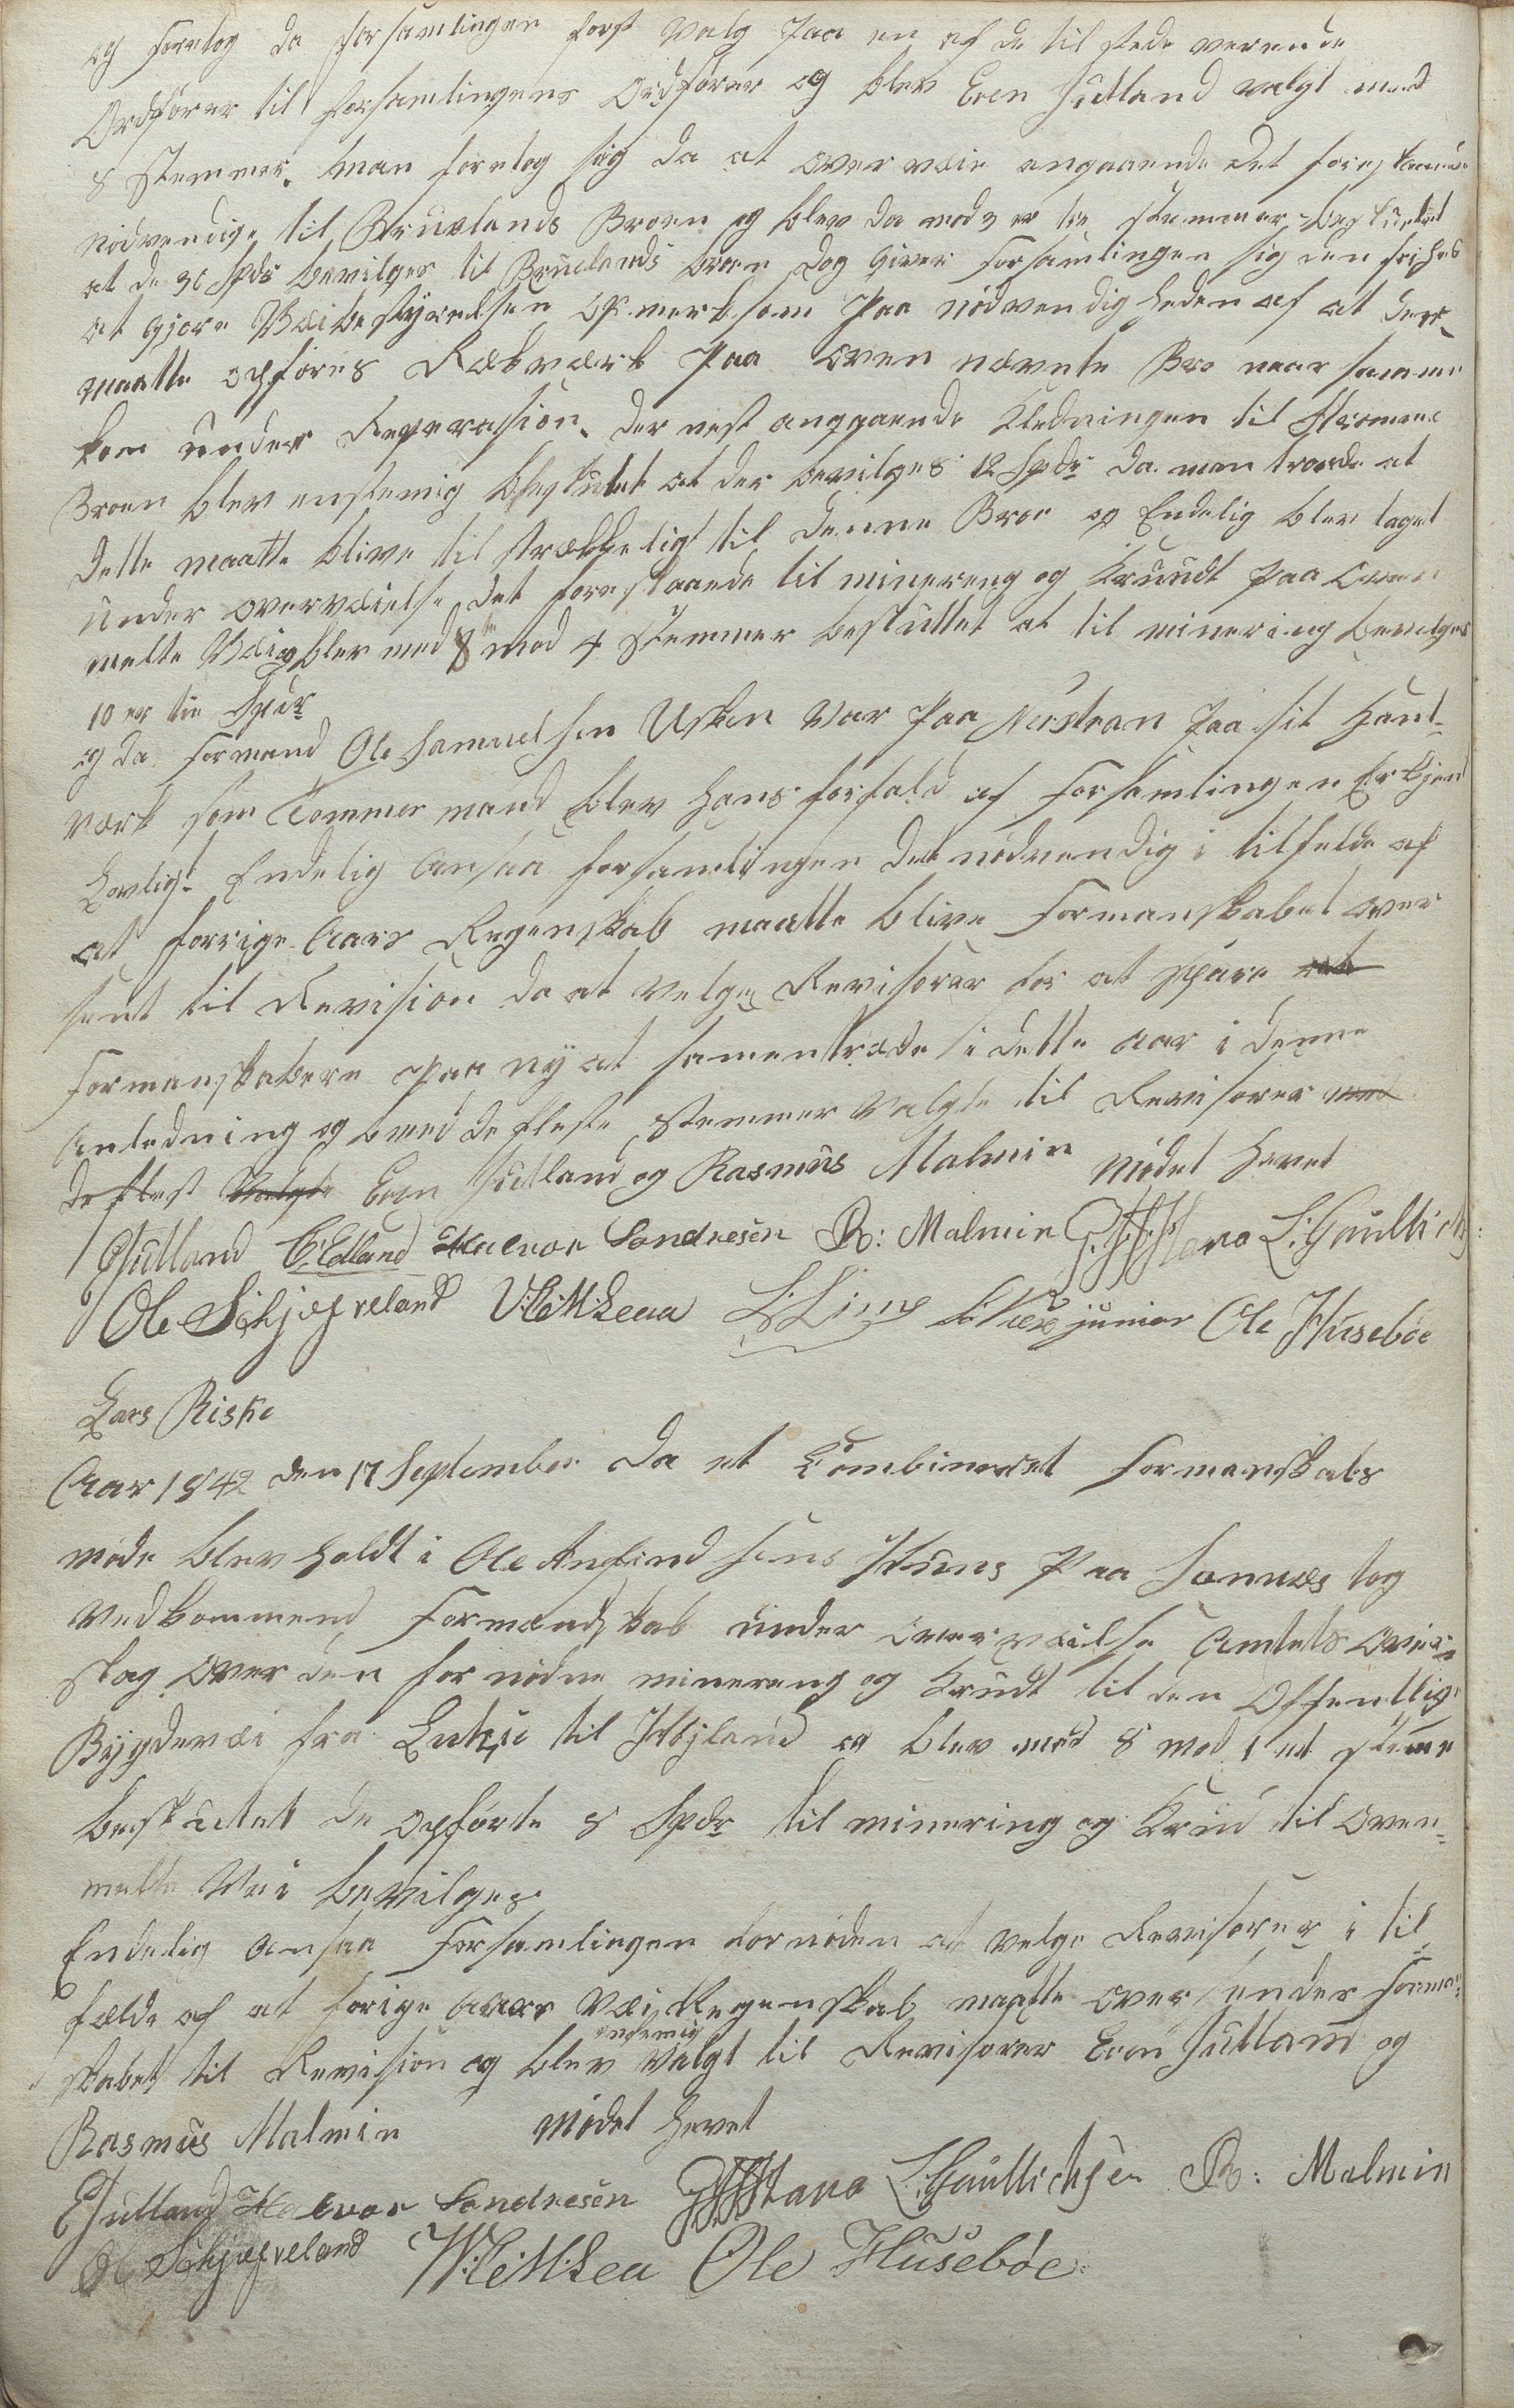 og foretog da forsamlingen först Valg Paa en af de til stede verende
Ordförer til forsamlingens Ordförer og blev Even Jutland valgt med
8 Stemmer. Man foretog sig da at overveie angaaende det forestaaende
nödvendige til Bruelands Broen og blev da mod 3 er tre stemmer besluttet
at de 30 Spdr bevilges til Bruelands broen dog giver forsamlingen sig den frihed
at gjöre Væibestyrelsen opmerksom Paa nödvendigheden af at der
maatte opföres Rekverk Paa oven nævnte Bro naar samme
kom under Reperasion. Der nest anggaende Kledningen til
Broen blev enstemig besluttet at der bevilges 12 Spdr da man troede at
dette maatte blive til strækkeligt til denne Broe og Endelig blev taget
under overveielse det forestaaende til minereng og Kruudt paa oven
melte Væi og blev med 8 mod 4 Stemmer besluttet at til minering bevilges
10 er tie Spdr
og da formand Ole Samuelsen Usken var Paa Nerstran Paa sit Hand-
værk som Tømmermand blev hans forfald af Forsamlingen Erkjend
Lovligt. Endelig Ansaa forsamlingen det nödvendig i tilfelde af
at forrige Aars Regenskab maatte blive Formanskabet over
sent til Revision da at velge Revisorer for at spare
Formanskabern paa ny at sammentræde i dette aar i denne
Anledning og med de fleste stemmer valgte til Revisorer med
de flest Valgte Even Jutland og Rasmus Malmin mödet hevet
EJutland E:Edland Halvor Sondresen R: Malmin L:Gaultichs:
Ole Schjæfveland V:C:M:Leaa L:Lima junior Ole Husebøe
Lars Riske
Aar 1842 den 17 September da et Combineret Formanskabs
möde blev holdt i Ole Anfindsens Huus Paa Sannæs tog
Vedkommend Formandskab under overveielse Amtets over-
slag over den for nödne minereng og Krudt til den Offentlige
Bygdevæi fra til Höjland og blev med 8 mod 1 et stemme
besluttet de opförte 8 Spdr til minering og Krud til oven-
melte Vei bevilges
Endelig Ansaa Forsamlingen fornöden at velge Revisorer i til-
fælde af at forige Aars Væi Regenskab maatte oversendes Forman-
skabet til Revision og blev enstemig Valgt til Revisorer Even Jutland og
Rasmus Malmin mödet hevet
EJutland Halvor Sondresen L:Gaultichsen R: Malmin
Ole Schjæfveland V:C:M:Lea Ole Husebøe